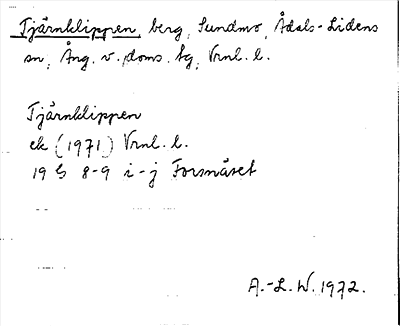 Tjärnklippen, berg, Sundmo, Ådals-Lidens
sn, Ång. v. doms. tg, Vrnl. l.
Tjärnklippen
ek (1971) Vrnl. l.
19 G 8-9 i-j Forsnäset
A.-L. W. 1972.